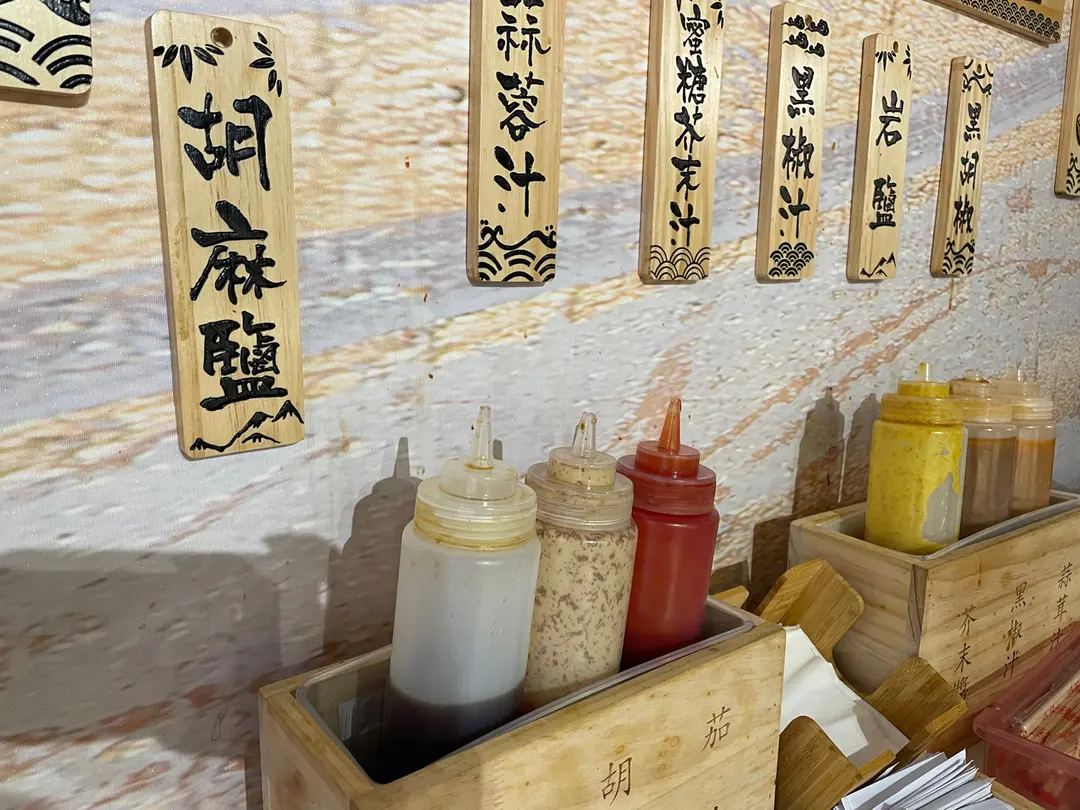 胡麻鹽
蒜蓉汁
蜜糖芥末汁
黑椒汁
岩鹽
黑胡椒
芥末醬
黑椒汁
蒜茸汁
胡
茄